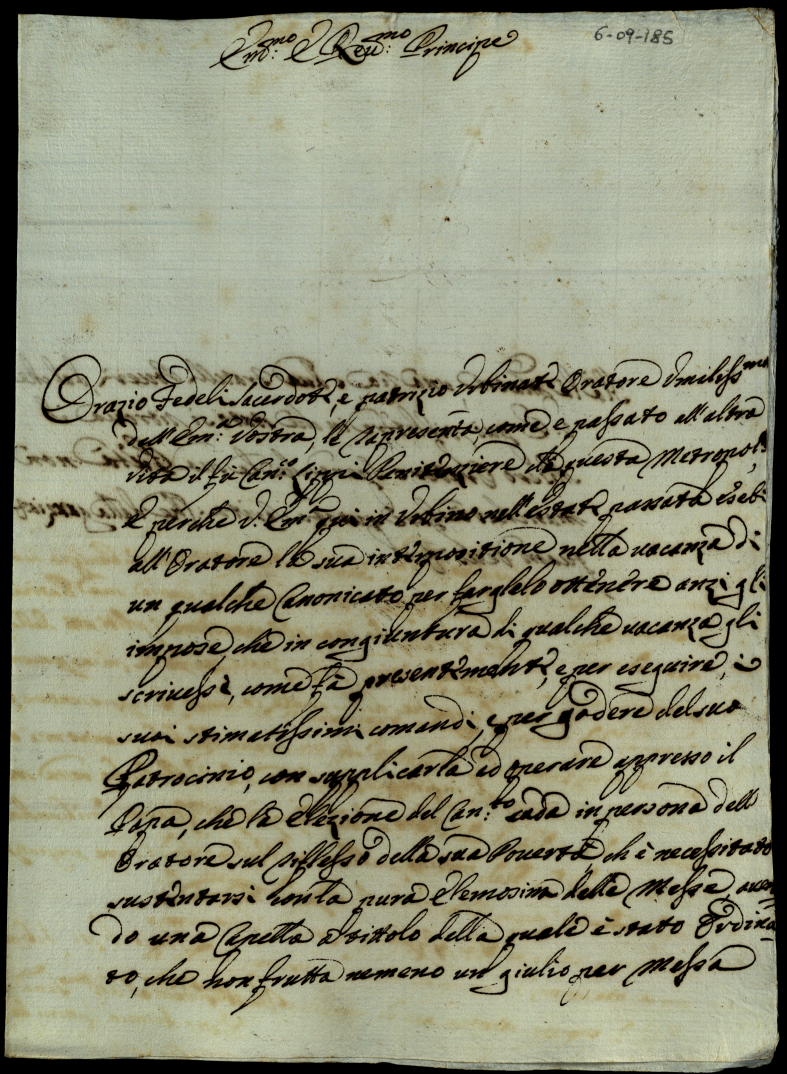 6-09-185
Em:mo E Reu:mo Principe
Orazio Fedeli Sacerdote, e patrizio Vrbinate Oratore Vmilessmo
dell'Em:a Vostra, le rapresenta, come e passato all'altra
vita il fù Can:co Penitenziere di questa Metropol:
E perche V: Em:a qui in Vrbino nell'estate passata esebì
all'Oratore la sua interpositione nella vacanza di
un qualche Canonicato per farglelo ottenere anzi gli
impose, che in congiuntura di qualche vacanza gli
scrivesse, come fà presentemente, e per eseguire, i
suoi stimatissimi comandi, e per godere del suo
Patrocinio, con supplicarla ad operare appresso il
Papa, che la elezione del Can:to cada in persona dell'
Oratore sul riflesso della sua Povertà ch'è necessitato
sustentarsi con la pura elemosina delle Messe, auen
do una Capella a tittolo della quale è stato Ordina
to, che non frutta nemeno un giulio per Messa